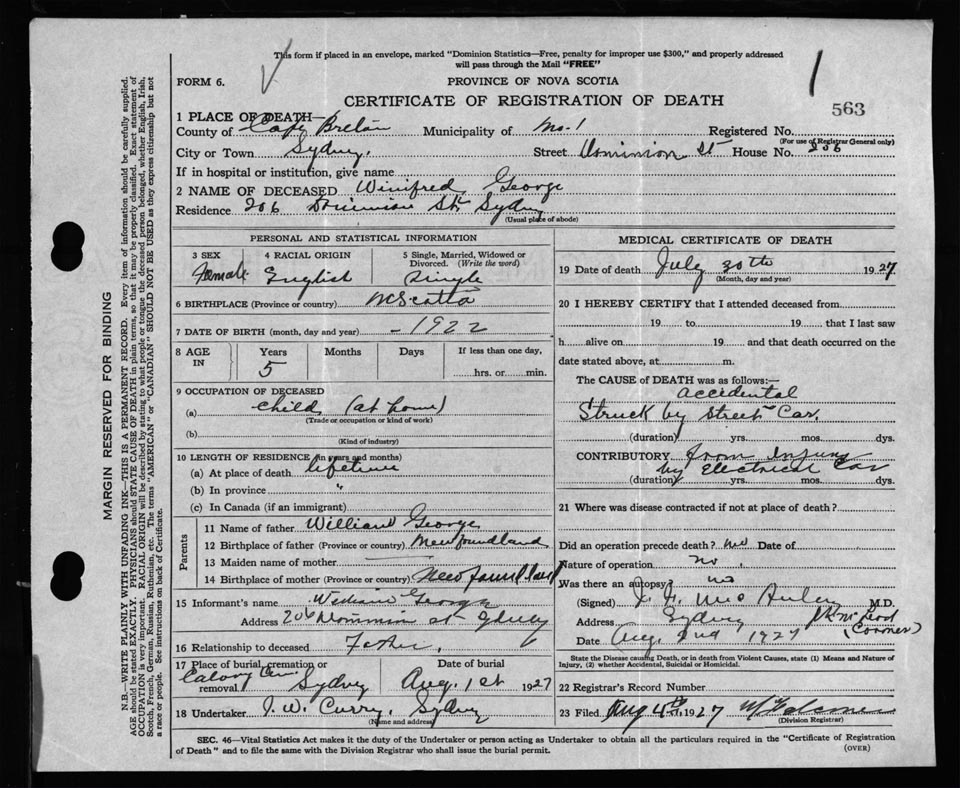 This form if placed in an envelope, marked "Dominion Statistics—Free, penalty for improper use $300," and properly addressed
will pass through the Mail "FREE"
FORM 6.
PROVINCE OF NOVA SCOTIA
CERTIFICATE OF REGISTRATION OF DEATH
563
1 PLACE OF DEATH—
County of Cape Breton Municipality of No. 1 Registered No.
(For use of Registrar General only)
City or Town Sydney, Street Dominion St House No. 206
If in hospital or institution, give name
2 NAME OF DECEASED Winifred George
Residence 206 Dominion St Sydney
(Usual place of abode)
PERSONAL AND STATISTICAL INFORMATION
3 SEX Female
4 RACIAL ORIGIN English
5 Single, Married, Widowed or Divorced. (Write the word) Single
6 BIRTHPLACE (Province or country) N Scotia
7 DATE OF BIRTH (month, day and year) – 1922
8 AGE IN Years Months Days If less than one day,
5 hrs. or min.
9 OCCUPATION OF DECEASED
(a) Child (at home)
(Trade or occupation or kind of work)
(b)
(Kind of industry)
10 LENGTH OF RESIDENCE (in years and months)
(a) At place of death lifetime
(b) In province "
(c) In Canada (if an immigrant)
Parents
11 Name of father William George
12 Birthplace of father (Province or country) Newfoundland
13 Maiden name of mother
14 Birthplace of mother (Province or country) Newfoundland
15 Informant's name George
Address 206 Dominion st Sydney
16 Relationship to deceased Father,
17 Place of burial, cremation or removal Calvary Cem. Sydney
Date of burial Aug. 1st 1927
18 Undertaker J. W. Curry, Sydney
(Name and address)
MEDICAL CERTIFICATE OF DEATH
19 Date of death July 30th 1927
(Month, day and year)
20 I HEREBY CERTIFY that I attended deceased from
19 to 19 that I last saw
h alive on 19 and that death occurred on the
date stated above, at m.
The CAUSE of DEATH was as follows:—
accidental
Struck by Street Car,
(duration) yrs. mos. dys.
CONTRIBUTORY from Injury
by Electrical Car
(duration) yrs. mos. dys.
21 Where was disease contracted if not at place of death?
Did an operation precede death? no Date of
Nature of operation no.
Was there an autopsy? no
(Signed) M.D.
Address Sydney
(Coroner)
Date Aug. 2nd 1927
State the Disease causing Death, or in death from Violent Causes, state (1) Means and Nature of
Injury, (2) whether Accidental, Suicidal or Homicidal.
22 Registrar's Record Number
23 Filed Aug 1927
(Division Registrar)
SEC. 46—Vital Statistics Act makes it the duty of the Undertaker or person acting as Undertaker to obtain all the particulars required in the "Certificate of Registration
of Death" and to file the same with the Division Registrar who shall issue the burial permit.
(OVER)
MARGIN RESERVED FOR BINDING
N.B.—WRITE PLAINLY WITH UNFADING INK—THIS IS A PERMANENT RECORD. Every item of information should be carefully supplied.
AGE should be stated EXACTLY. PHYSICIANS should STATE CAUSE OF DEATH in plain terms, so that it may be properly classified. Exact statement of
OCCUPATION is very important. RACIAL ORIGIN will be described by stating to what people or tongue the deceased person belonged, whether English, Irish,
Scotch, French, German, Russian, Ruthenian, etc. The terms "AMERICAN" or "CANADIAN" SHOULD NOT BE USED as they express citizenship but not
a race or people. See instructions on back of Certificate.